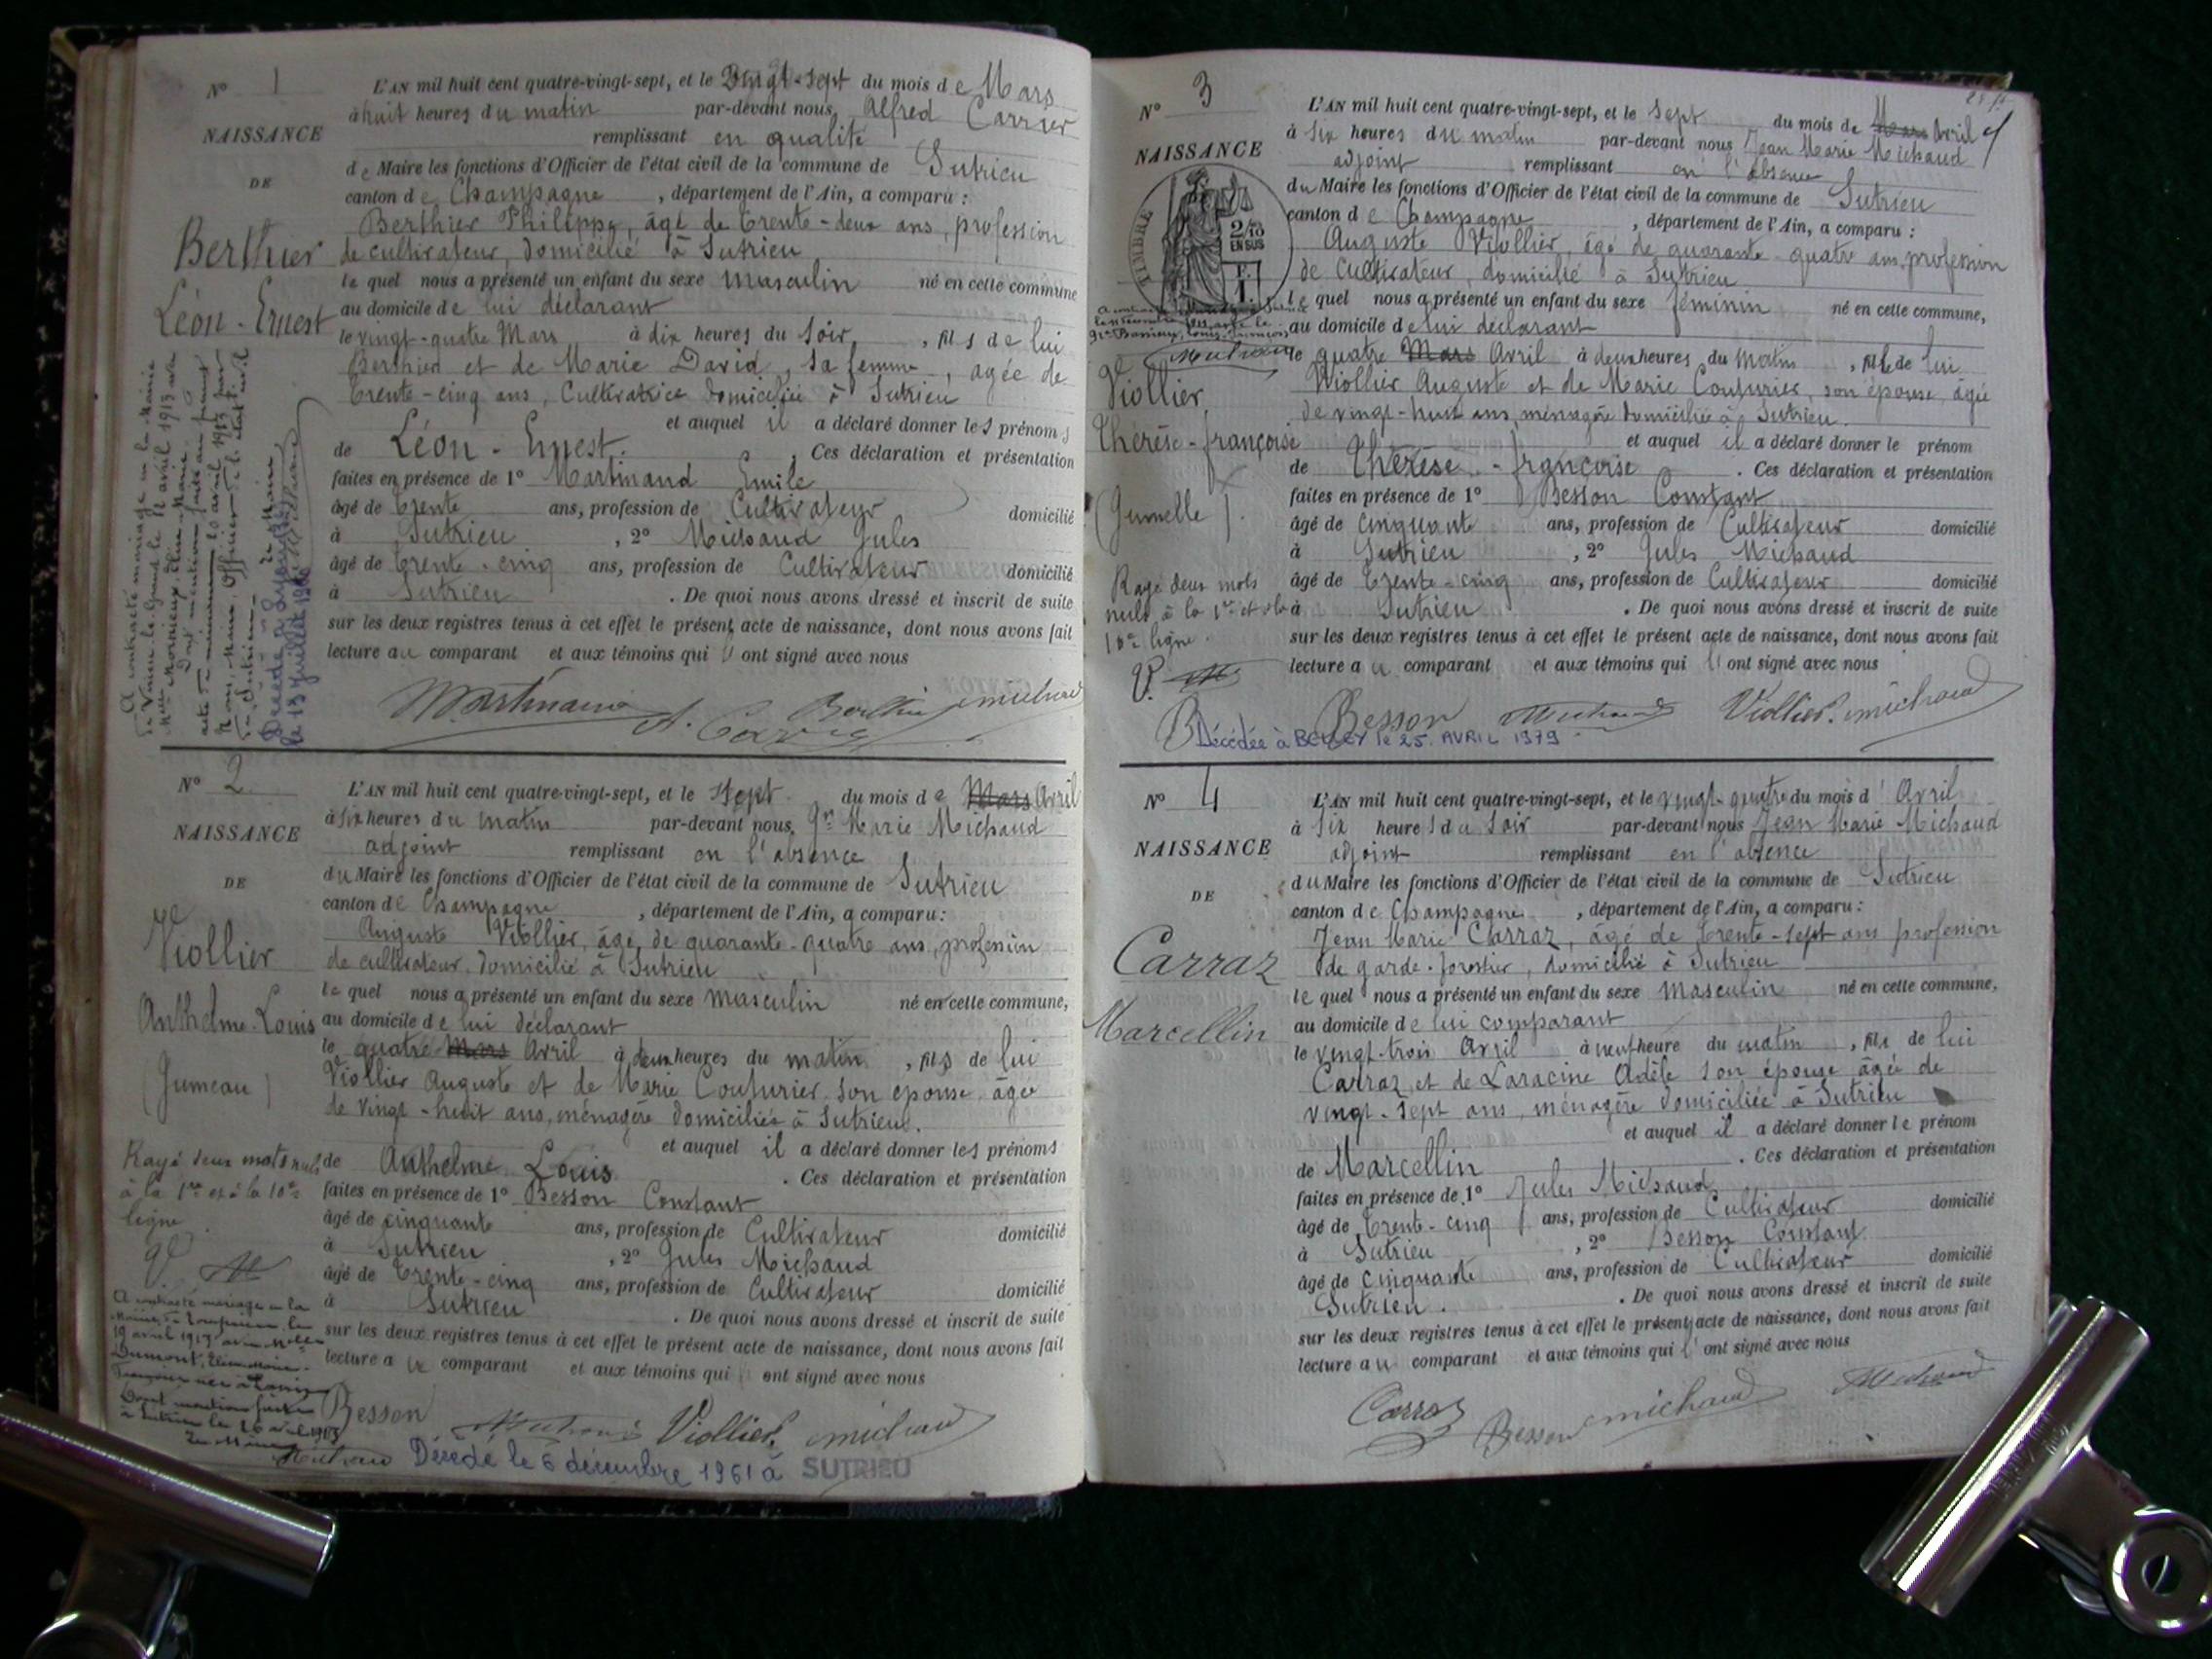 N° 1
NAISSANCE
DE
Berthier
Léon-Ernest
L'AN mil huit cent quatre-vingt-sept, et le Vingt-sept du mois de Mars
à huit heures du matin par-devant nous, Alfred Carrier
remplissant en qualité
de Maire les fonctions d'Officier de l'état civil de la commune de Sutrieu
canton de Champagne, département de l'Ain, a comparu :
Berthier Philippe, âgé de trente-deux ans, profession
de cultivateur, domicilié à Sutrieu
lequel nous a présenté un enfant du sexe masculin né en cette commune
au domicile de lui déclarant
le vingt-quatre Mars à dix heures du Soir, fils de lui
Berthier et de Marie David, sa femme, agée de
trente-cinq ans, Cultivatrice domiciliée à Sutrieu
et auquel il a déclaré donner les prénoms
de Léon-Ernest. Ces déclaration et présentation
faites en présence de 1° Martinand Emile
âgé de trente ans, profession de Cultivateur domicilié
à Sutrieu, 2° Michaud Jules
âgé de trente-cinq ans, profession de Cultivateur domicilié
à Sutrieu. De quoi nous avons dressé et inscrit de suite
sur les deux registres tenus à cet effet le présent acte de naissance, dont nous avons fait
lecture au comparant et aux témoins qui ont signé avec nous
A contracté mariage en la Mairie
avril 1913
Décédé à
Martinand A. Carrier Berthier Michaud
N° 2
NAISSANCE
DE
Viollier
Anthelme-Louis
(Jumeau)
Rayé deux mots nuls
à la 1re et à la 10e
ligne
L'AN mil huit cent quatre-vingt-sept, et le Sept du mois de Mars Avril
à six heures du matin par-devant nous, Jn Marie Michaud
adjoint remplissant en l'absence
du Maire les fonctions d'Officier de l'état civil de la commune de Sutrieu
canton de Champagne, département de l'Ain, a comparu :
Auguste Viollier, âgé de quarante-quatre ans, profession
de cultivateur, domicilié à Sutrieu
lequel nous a présenté un enfant du sexe masculin né en cette commune,
au domicile de lui déclarant
le quatre Mars Avril à deux heures du matin, fils de lui
Viollier Auguste et de Marie Couturier, son épouse, âgée
de vingt-huit ans, ménagère domiciliée à Sutrieu.
et auquel il a déclaré donner les prénoms
de Anthelme Louis. Ces déclaration et présentation
faites en présence de 1° Besson Constant
âgé de cinquante ans, profession de Cultivateur domicilié
à Sutrieu, 2° Jules Michaud
âgé de trente-cinq ans, profession de Cultivateur domicilié
à Sutrieu. De quoi nous avons dressé et inscrit de suite
sur les deux registres tenus à cet effet le présent acte de naissance, dont nous avons fait
lecture au comparant et aux témoins qui ont signé avec nous
A contracté mariage en la
19 avril 1913 avec Melle
Dumont,
Dont mention faite
à Sutrieu le
Le Maire
Besson Michaud Viollier michaud
Décédé le 6 décembre 1961 à SUTRIEU
N° 3
NAISSANCE
TIMBRE
2/10
EN SUS
Viollier
Thérèse-françoise
(Jumelle).
Rayé deux mots
nuls à la 1re et à la
10e ligne.
L'AN mil huit cent quatre-vingt-sept, et le Sept du mois de Mars Avril
à six heures du matin par-devant nous Jean Marie Michaud
adjoint remplissant en l'absence
du Maire les fonctions d'Officier de l'état civil de la commune de Sutrieu
canton de Champagne, département de l'Ain, a comparu :
Auguste Viollier, âgé de quarante-quatre ans, profession
de Cultivateur, domicilié à Sutrieu
lequel nous a présenté un enfant du sexe féminin né en cette commune,
au domicile de lui déclarant
le quatre Mars Avril à deux heures du matin, fille de lui
Viollier Auguste et de Marie Couturier, son épouse, âgée
de vingt-huit ans, ménagère domiciliée à Sutrieu.
et auquel il a déclaré donner le prénom
de Thérèse-françoise. Ces déclaration et présentation
faites en présence de 1° Besson Constant
âgé de cinquante ans, profession de Cultivateur domicilié
à Sutrieu, 2° Jules Michaud
âgé de trente-cinq ans, profession de Cultivateur domicilié
à Sutrieu. De quoi nous avons dressé et inscrit de suite
sur les deux registres tenus à cet effet le présent acte de naissance, dont nous avons fait
lecture au comparant et aux témoins qui ont signé avec nous
Besson Michaud Viollier. michaud
Décédée à BELLEY le 25 AVRIL 1979
N° 4
NAISSANCE
DE
Carraz
Marcellin
L'AN mil huit cent quatre-vingt-sept, et le vingt-quatre du mois d'Avril
à six heures du soir par-devant nous Jean Marie Michaud
adjoint remplissant en l'absence
du Maire les fonctions d'Officier de l'état civil de la commune de Sutrieu
canton de Champagne, département de l'Ain, a comparu :
Jean Marie Carraz, âgé de trente-sept ans profession
de garde-forestier, domicilié à Sutrieu
lequel nous a présenté un enfant du sexe Masculin né en cette commune,
au domicile de lui comparant
le vingt-trois Avril à neuf heure du matin, fils de lui
Carraz, et de Laracine Adèle son épouse âgée de
vingt-sept ans, ménagère domiciliée à Sutrieu
et auquel il a déclaré donner le prénom
de Marcellin. Ces déclaration et présentation
faites en présence de 1° Jules Michaud
âgé de trente-cinq ans, profession de Cultivateur domicilié
à Sutrieu, 2° Besson Constant
âgé de cinquante ans, profession de Cultivateur domicilié
Sutrieu. De quoi nous avons dressé et inscrit de suite
sur les deux registres tenus à cet effet le présent acte de naissance, dont nous avons fait
lecture au comparant et aux témoins qui ont signé avec nous
Carraz Besson michaud Michaud